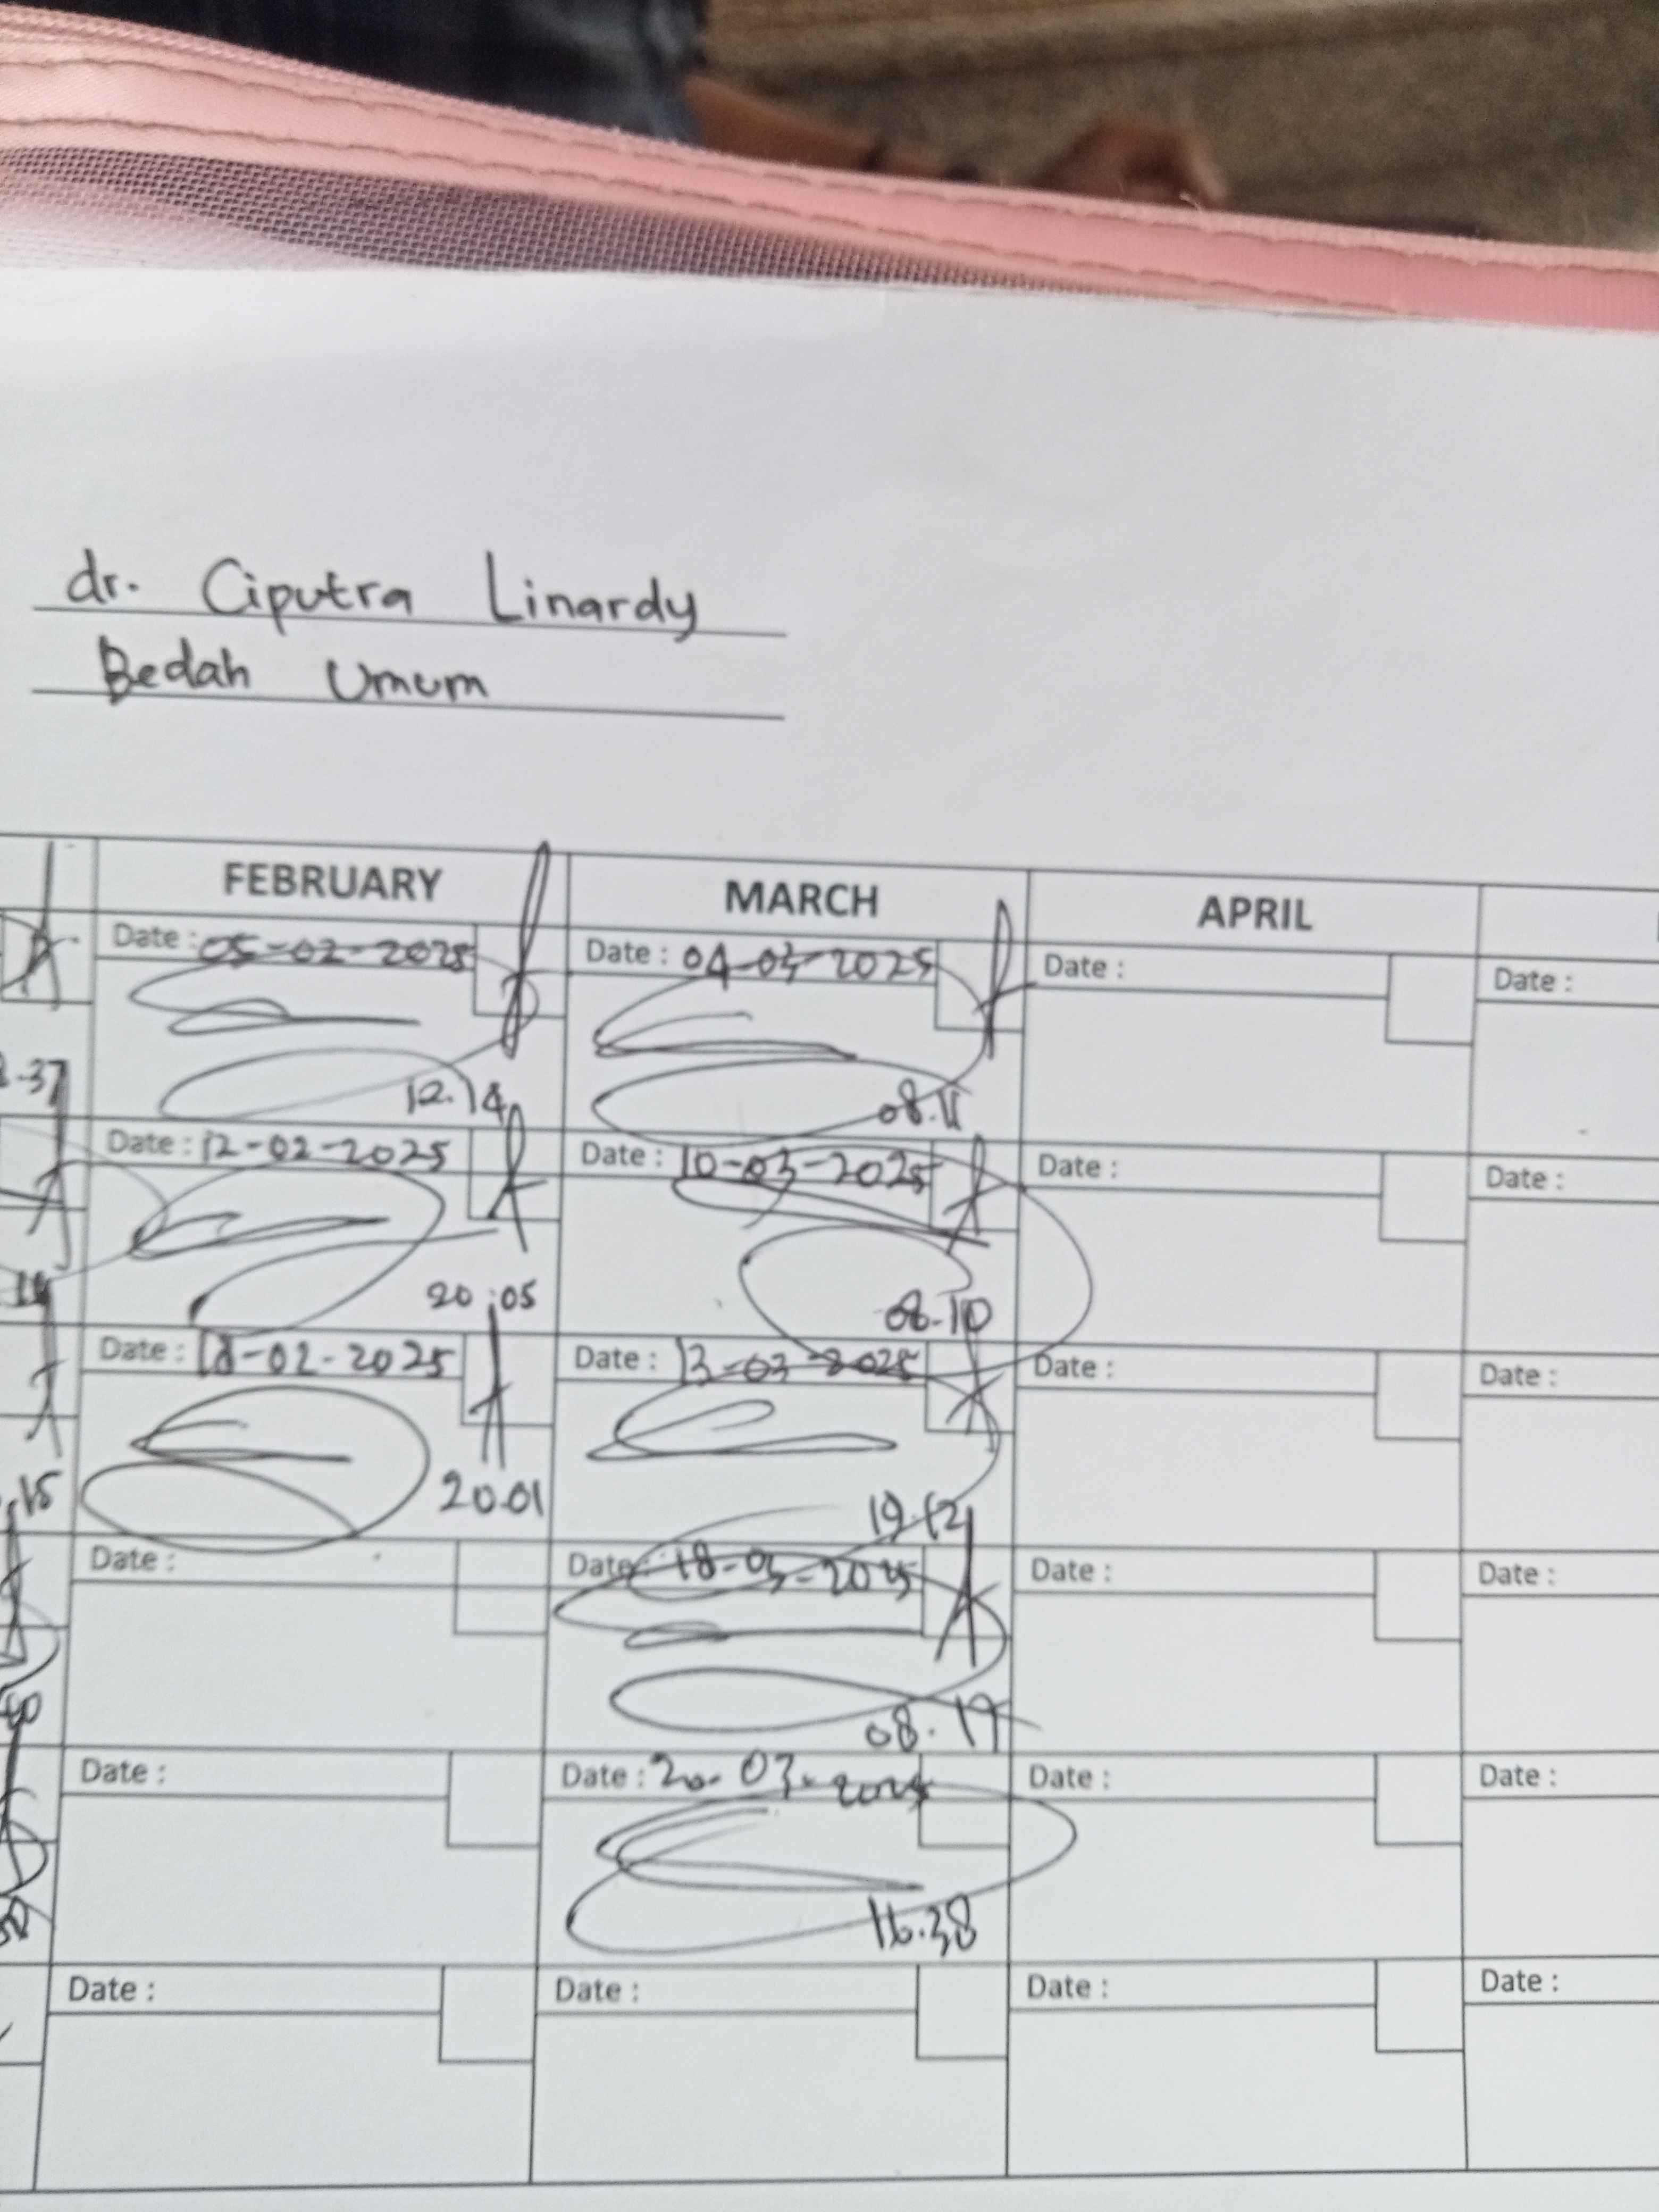 dr. Ciputra Linardy
Bedah Umum
FEBRUARY MARCH APRIL
Date : 05-02-2025 Date : 04-03-2025 Date : Date :
.37 12.14 08.11
Date : 12-02-2025 Date : 10-03-2025 Date : Date :
20:05 08.10
Date : 18-02-2025 Date : 13-03-2025 Date : Date :
.15 20.01 19.12
Date : Date : 18-03-2025 Date : Date :
08.19
Date : Date : 20-03-2025 Date : Date :
16.38
Date : Date : Date : Date :